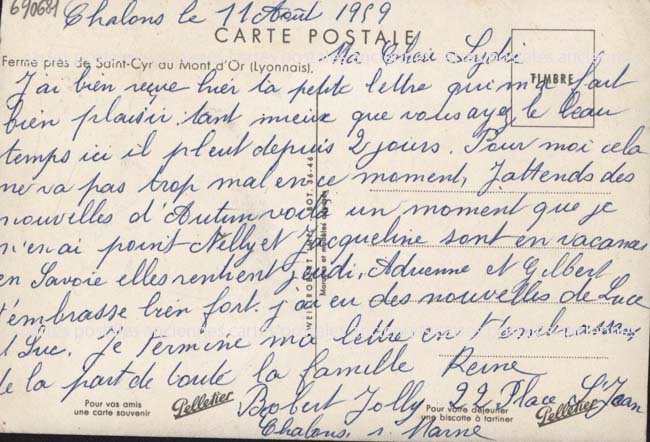 690681
Chalons le 11 Août 1959
CARTE POSTALE
Ma Chère
Ferme près de Saint-Cyr au Mont d'Or (Lyonnais).
TIMBRE
J'ai bien reçue hier ta petite lettre qui m'a fait
bien plaisir. tant mieux que vous ayez le beau
temps ici il pleut depuis 2 jours. Pour moi cela
ne va pas trop mal en ce moment, J'attends des
nouvelles d'Autun voila un moment que je
n'en ai point Nelly et Jacqueline sont en vacances
en Savoie elles rentrent jeudi, Adrienne et Gilbert
t'embrasse bien fort. j'ai eu des nouvelles de Luce
et Luc. Je termine ma lettre en t'embrassant
de la part de toute la famille Reine
Robert Jolly 22 Place St Jean
Chalons s. Marne
Pour vos amis
une carte souvenir
Pelletier
Pour votre déjeuner
une biscotte à tartiner
Pelletier